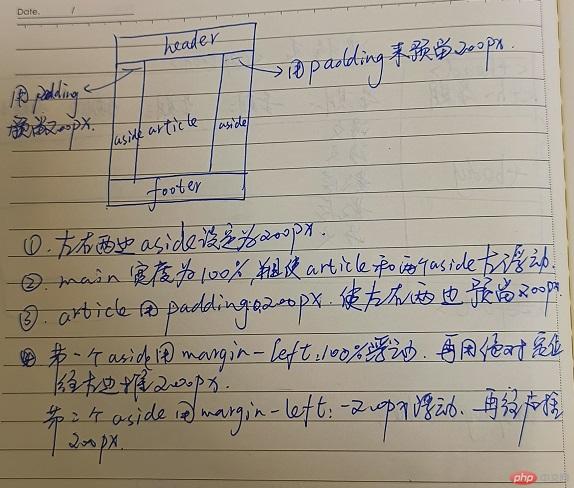 Date.
header
用padding来预留200px.
用padding
预留200px.
aside
article
aside
footer
①. 左右两边aside设定为200px.
②. main 宽度为100%,并且使article和两个aside左浮动.
③. article 用padding:0 200px. 使左右两边预留200px.
④ 第一个aside用margin-left:100%浮动. 再用绝对定位
往左边推200px.
第二个aside用margin-left:-200px浮动. 再往右推
200px.
php 中文网